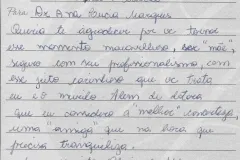 Para Dra Ana Lucia Marques
Queria te agradecer por vc tornar
esse momento maravilhoso, ser "mãe",
seguro com seu profissionalismo, com
esse jeito carinhoso que vc trata
eu e o murilo. Além de
que eu considero a "melhor"
uma "amiga que na hora que
preciso tranqueliza.